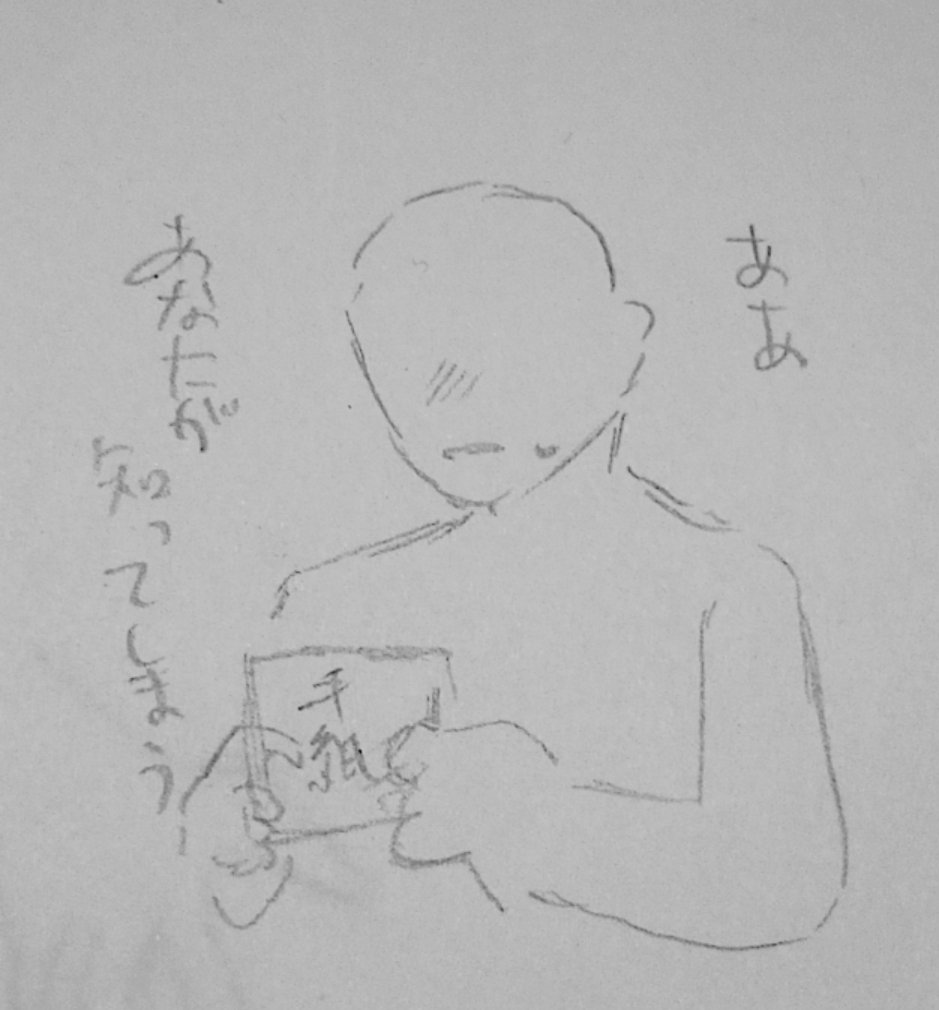 ああ
手紙
あなたが
知ってしまう